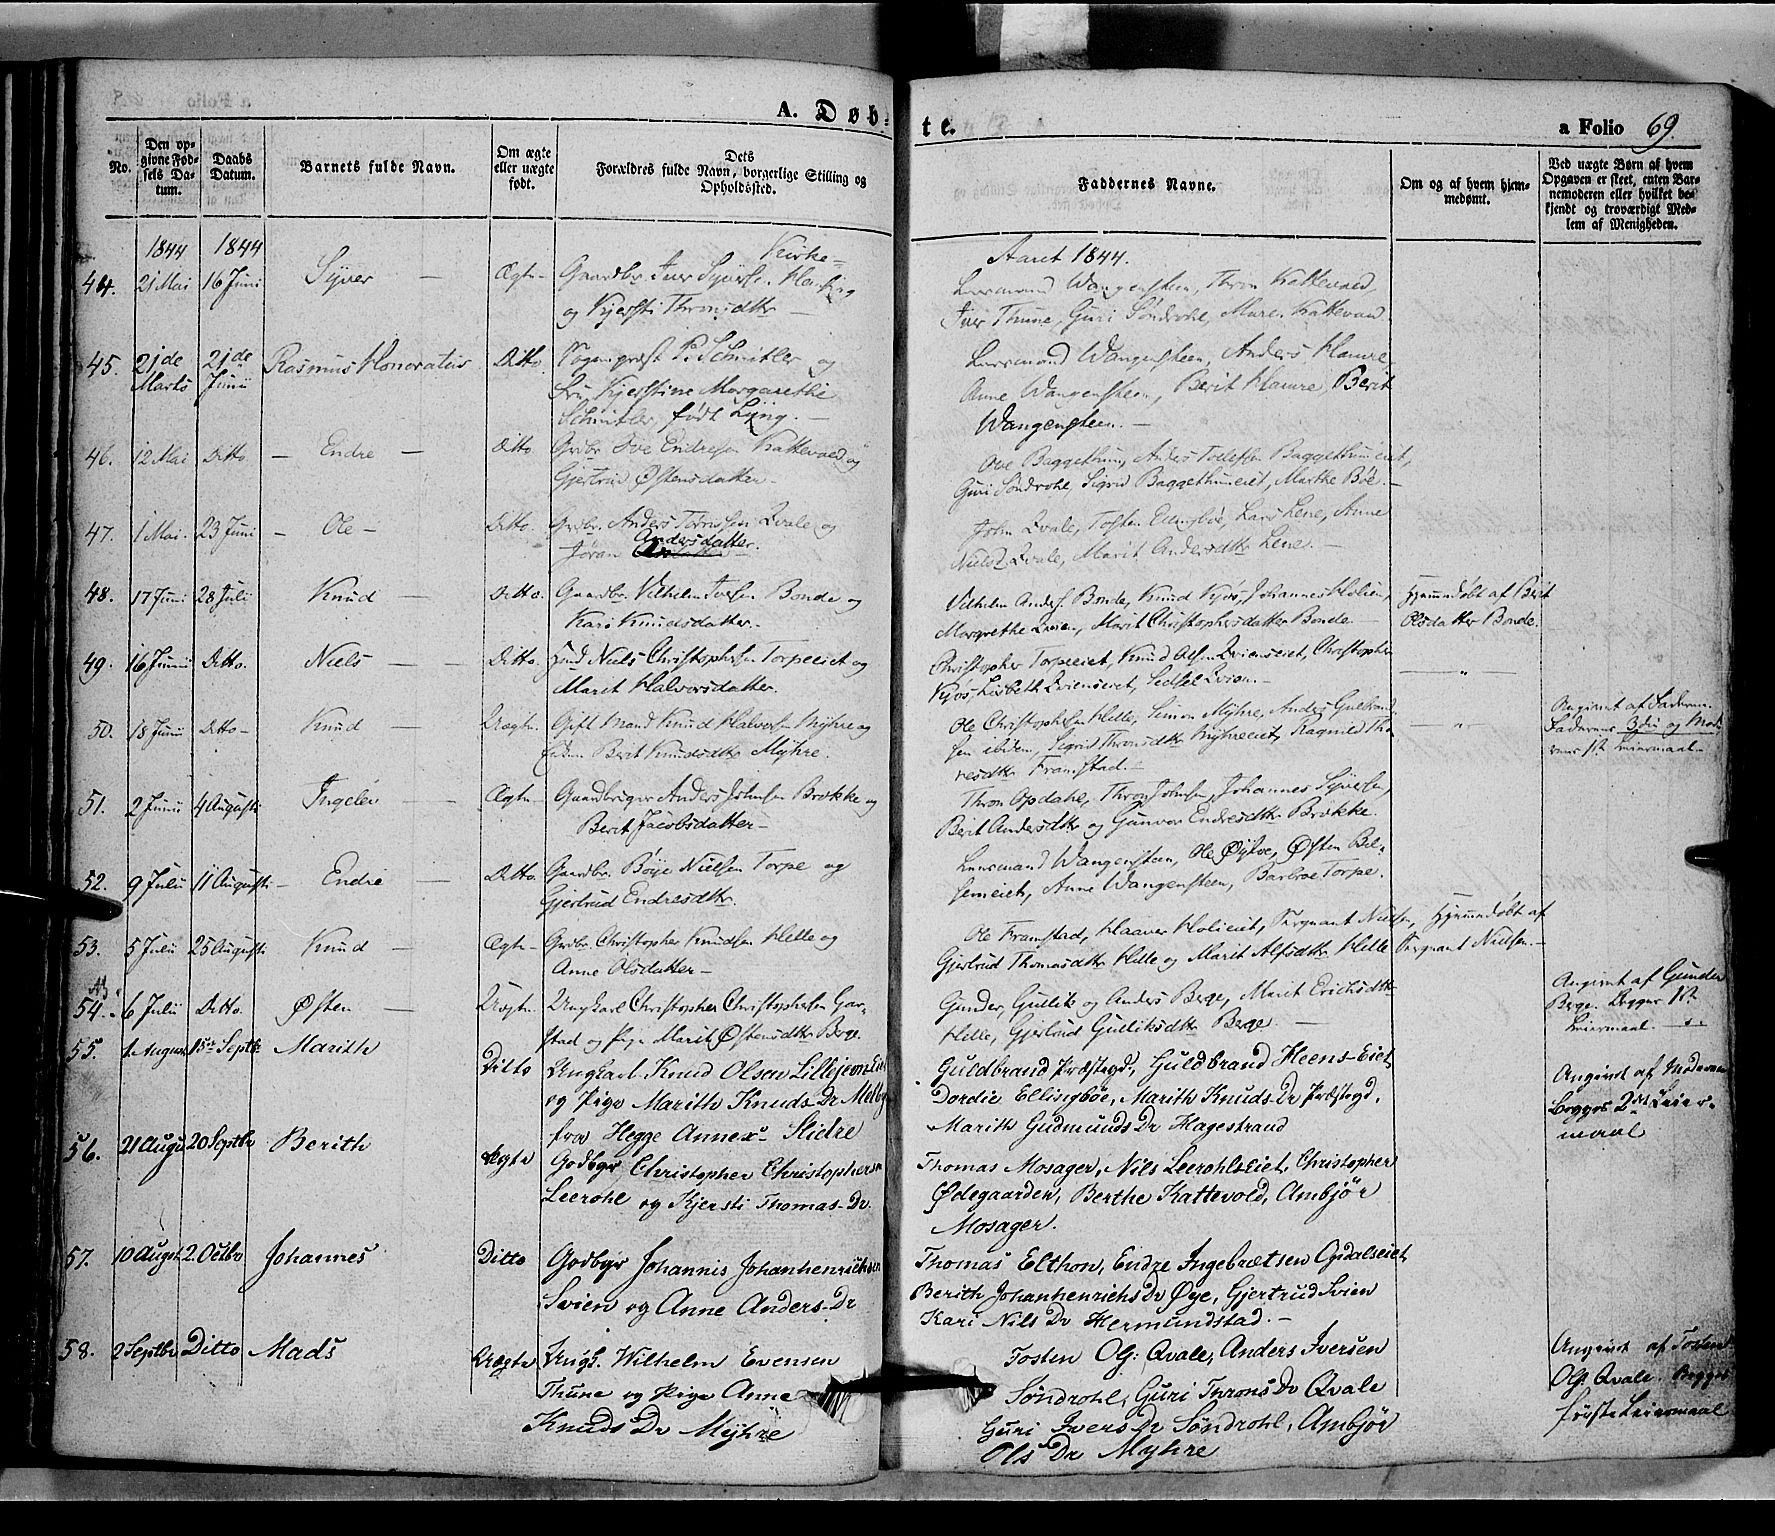 A. Døb=
te.
a Folio 69
No.
Den opgivne Fødsels Datum.
Daabs Datum.
Barnets fulde Navn.
Om ægte eller uægte født.
Dets Forældres fulde Navn, borgerlige Stilling og Opholdssted.
Faddernes Navne.
Om og af hvem hjemmedømt.
Ved uægte Børn af hvem Opgaven er skeet, enten Barnemoderen eller hvilket bekjendt og troværdigt Medlem af Menigheden.
1844 1844
Aaret 1844.
44. 21 Mai 16 Juni Syver — Ægte Gaardbr. Iver Syvers. Kirke=
og Kjersti Thronsdtr —
Leensmand Wangensteen, Thron Kattevold,
Iver Thune, Guri Søndrohl, Maren Kattevold
45. 21de Marts 21de Junii Rasmus Honoratus Ditto Sogneprest P. Schnitler og
Fru Kjerstine Margarethe
Schnitler, født Lyng. —
Leensmand Wangensteen, Anders Hamre,
Anne Wangensteen, Berit Hamre, Berit
Wangensteen. —
46. 12 Mai Ditto — Endre — Ditto Grdbr Ove Endresen Kattevold og
Gjertrud Østensdatter —
Ove Baggethun, Anders Baggethuneiet,
Guri Søndrohl, Sigrid Baggethuneiet, Marthe Bøe. —
47. 1 Mai. 23 Juni — Ole — Ditto. Grdbr. Anders Qvale og
Joran Andersdatter.
John Qvale, Tosten Ellingbøe, Lars Lene, Anne
Nielsd Qvale, Marit Andersdtr Lene. —
48. 17 Juni 28 Juli Knud — Ditto. Gaardbr. Vilhelm Iversen Bonde og
Kari Knudsdatter. —
Vilhelm Anders. Bonde, Knud Kjøs, Johannes Holien,
Margrethe Qvien, Marit Christophersdatter Bonde
Hjemmedøbt af Berit
Olsdatter Bonde.
49. 16 Junii Ditto. Niels — — Ditto. Hmd Niels Christophersen Torpeeiet og
Marit Halvorsdatter.
Christopher Torpeeiet, Knud Olsen Qvienseiet, Christopher
Kjøs, Lisbeth Qvienseiet, Sidsel Qvien. —
— „ —
50. 18 Junii Ditto — Knud — Uægte Gift Mand Knud Halvorsen Myhre og
Enken Berit Knudsdtr Myhre.
Ole Christophersen Helle, Simon Myhre, Anders Gulbrand=
sen ibidem, Sigrid Thronsdtr Myhreeiet, Ragnild Tho=
resdtr Framstad. —
— „ —
Angivet af Faderen.
Faderens 3die og Mod=
erens 1st Leiermaal. —
51. 2 Junii 4 Augusti Ingelev — — Ægte Gaardbruger Anders Johnsen Brække og
Berit Jacobsdatter —
Thron Opdahl, Thron Johnsen, Johannes Syversen,
Berit Andersdtr og Gunvor Endresdtr Brække.
52. 9 Julii 11 Augusti — Endre — Ditto. Gaardbr. Bøye Nielsen Torpe og
Gjertrud Endresdtr.
Leensmand Wangensteen, Ole Øyloe, Østen Bel=
semeiet, Anne Wangensteen, Barbroe Torpe.
53. 5 Julii 25 Augusti Knud — Ægte — Grdbr. Christopher Knudsen Helle og
Anne Olsdatter —
Ole Framstad, Haaver Holieiet, Sergeant Nielsen,
Gjertrud Thomasdtr Helle og Marit Alfsdtr Helle
Hjemmedøbt af
Sergeant Nielsen. —
54. 6 Julii Ditto. Østen — Uægte Ungkarl Christopher Christophersen Gar=
stad og Pige Marit Østensdtr Berge.
Gunder, Gullik og Anders Berge, Marit Erichsdtr
Helle, Gjertrud Gulliksdtr Berge. —
Angivet af Gunder
Berge. Begges 1st
Leiermaal. —
55. 1 August 15 Septbr Marith Ditto Ungkarl Knud Olsen Lillejorneiet
og Pige Marith Knuds Dr Melby
fra Hegge Annex Slidre
Guldbrand Præstegd, Guldbrand Heens-Eiet
Dordie Ellingbøe, Marith Knuds Dr Præstegd.
Marith Gudmunds Dr Hagestrand
Angivet af Moderen
Begges 2det Leier=
maal
56. 21 Augu 20 Septbr Berith Ægte Godbgr Christopher Christophersen
Leerohl og Kjersti Thomas Dr.
Thomas Mosager, Nils Leerohlseiet, Christopher
Ødegaarden, Berthe Kattevold, Ambjør
Mosager.
57. 10 August 2. Octbr Johannes Ditto Godbgr Johannis Johanhenrichsen
Svien og Anne Anders Dr
Thomas Elthon, Endre Ingebrætsen Opdalseiet
Berith Johanhenrichs Dr Øye, Gjertrud Svien
Kari Nils Dr Hermundstad. —
58. 2 Septbr Ditto Mads Uægte Ungk. Wilhelm Evensen
Thune og Pige Anne
Knuds Dr Myhre
Tosten Ols: Qvale, Anders Iversen
Søndrohl, Guri Throns Dr Qvale
Guri Ivers Dr Søndrohl, Ambjør
Ols Dr Myhre
Angivet af Tosten
Ols Qvale. Begges
første Leiermaal